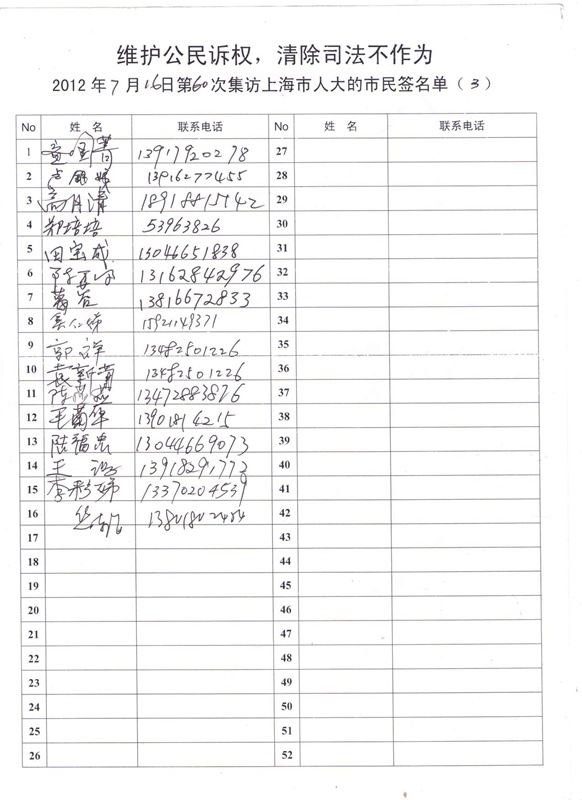 维护公民诉权，清除司法不作为
2012年7月16日第60次集访上海市人大的市民签名单（3）
No 姓 名 联系电话 No 姓 名 联系电话
1 13917920278 27
2 13916277455 28
3 高月清 29
4 郑培培 53963826 30
5 田宝成 13046651838 31
6 13162842976 32
7 葛 13816672833 33
8 15921149371 34
9 郭 13482501226 35
10 袁新 13482501226 36
11 陈 13472883876 37
12 王菊华 13901814215 38
13 陆福忠 13044669073 39
14 王 13918291773 40
15 李彩娣 13370204539 41
16 13801802404 42
17 43
18 44
19 45
20 46
21 47
22 48
23 49
24 50
25 51
26 52